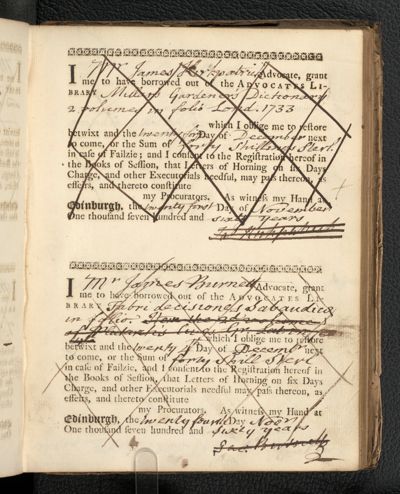 I Mr James Kirkpatrick Advocate, grant
me to have borrowed out of the ADVOCATES LI-
BRARY Millers Gardeners Dictionary
2 volumes in folio Lond. 1733
which I oblige me to restore
betwixt and the twenty first Day of December next
to come, or the Sum of forty Shillings Sterl.
in case of Failzie; and I consent to the Registration hereof in
the Books of Session, that Letters of Horning on six Days
Charge, and other Executorials needful, may pass thereon, as
effeirs, and thereto constitute
my Procurators. As witness my Hand at
Edinburgh, the twenty first Day of November
One thousand seven hundred and sixty years
I Mr James Burnett Advocate, grant
me to have borrowed out of the ADVOCATES LI-
BRARY Fabri decisiones Sabaudicae
in folio.
which I oblige me to restore
betwixt and the twenty Day of Decembr next
to come, or the Sum of forty Shill Sterl
in case of Failzie, and I consent to the Registration hereof in
the Books of Session, that Letters of Horning on six Days
Charge, and other Executorials needful may pass thereon, as
effeirs, and thereto constitute
my Procurators. As witness my Hand at
Edinburgh, the twenty fourth Day Novr
One thousand seven hundred and sixty years
Jac. Burnett